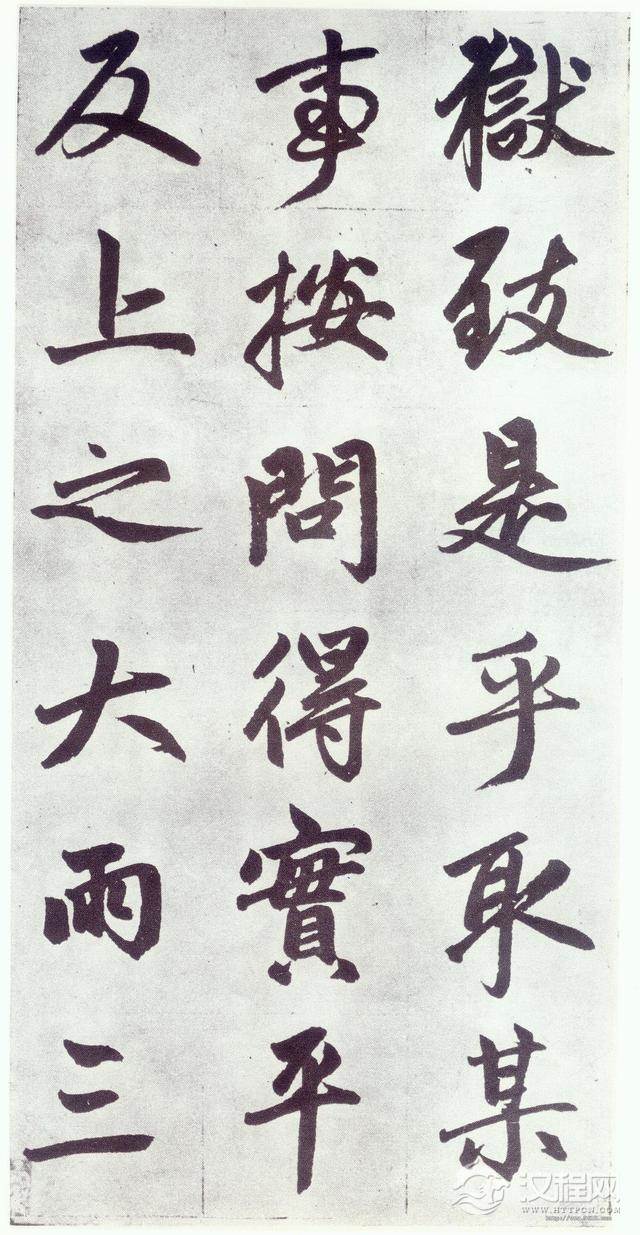 獄致是乎取某
事按問得實平
反上之大雨三
汉程网
WWW.HTTPCN.COM